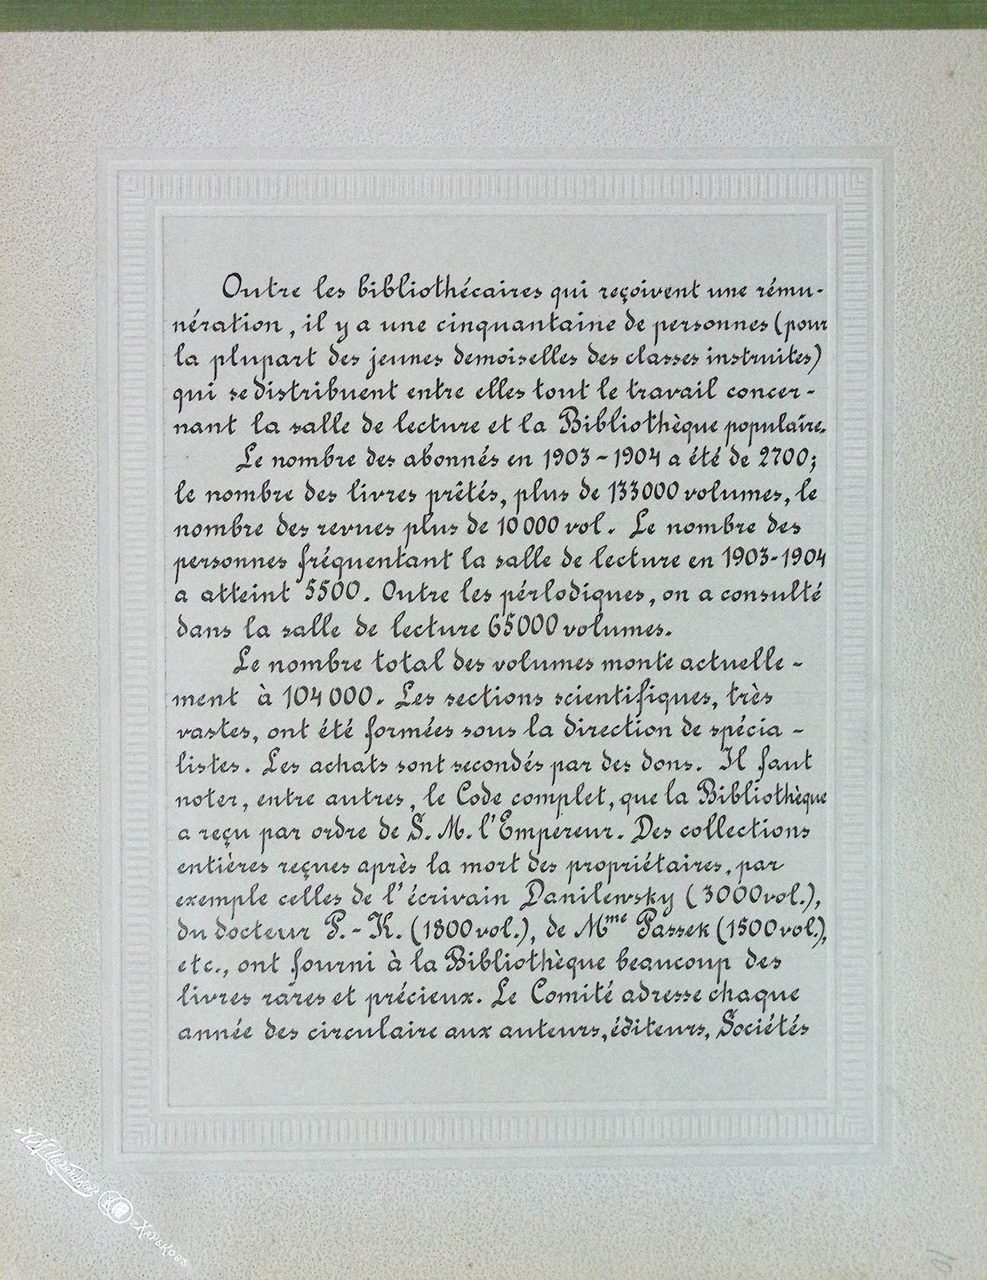 Outre les bibliothécaires qui reçoivent une rému-
nération, il y a une cinquantaine de personnes (pour
la plupart des jeunes demoiselles des classes instruites)
qui se distribuent entre elles tout le travail concer-
nant la salle de lecture et la Bibliothèque populaire.
Le nombre des abonnés en 1903-1904 a été de 2700;
le nombre des livres prêtés, plus de 133000 volumes, le
nombre des revues plus de 10000 vol. Le nombre des
personnes fréquentant la salle de lecture en 1903-1904
a atteint 5500. Outre les pérlodiques, on a consulté
dans la salle de lecture 65000 volumes.
Le nombre total des volumes monte actuelle-
ment à 104000. Les sections scientifiques, très
vastes, ont été formées sous la direction de spécia-
listes. Les achats sont secondés par des dons. Il faut
noter, entre autres, le Code complet, que la Bibliothèque
a reçu par ordre de S. M. l'Empereur. Des collections
entières reçues après la mort des propriétaires, par
exemple celles de l'écrivain Danilewsky (3000 vol.),
du docteur P.-K. (1800 vol.), de Mme Passek (1500 vol.),
etc., ont fourni à la Bibliothèque beaucoup des
livres rares et précieux. Le Comité adresse chaque
année des circulaire aux auteurs, éditeurs, Sociétés
Харьковъ